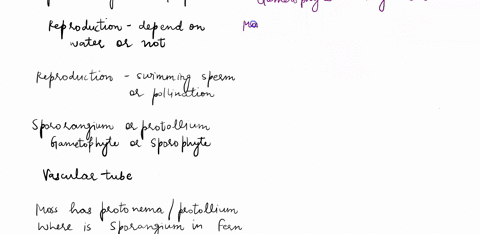 Reproduction - depend on
water or not
Reproduction - swimming sperm
or pollination
Sporangium or protollium
Gametophyte or Sporophyte
Vascular tube
Moss has protonema / protollium
Where is Sporangium in fern